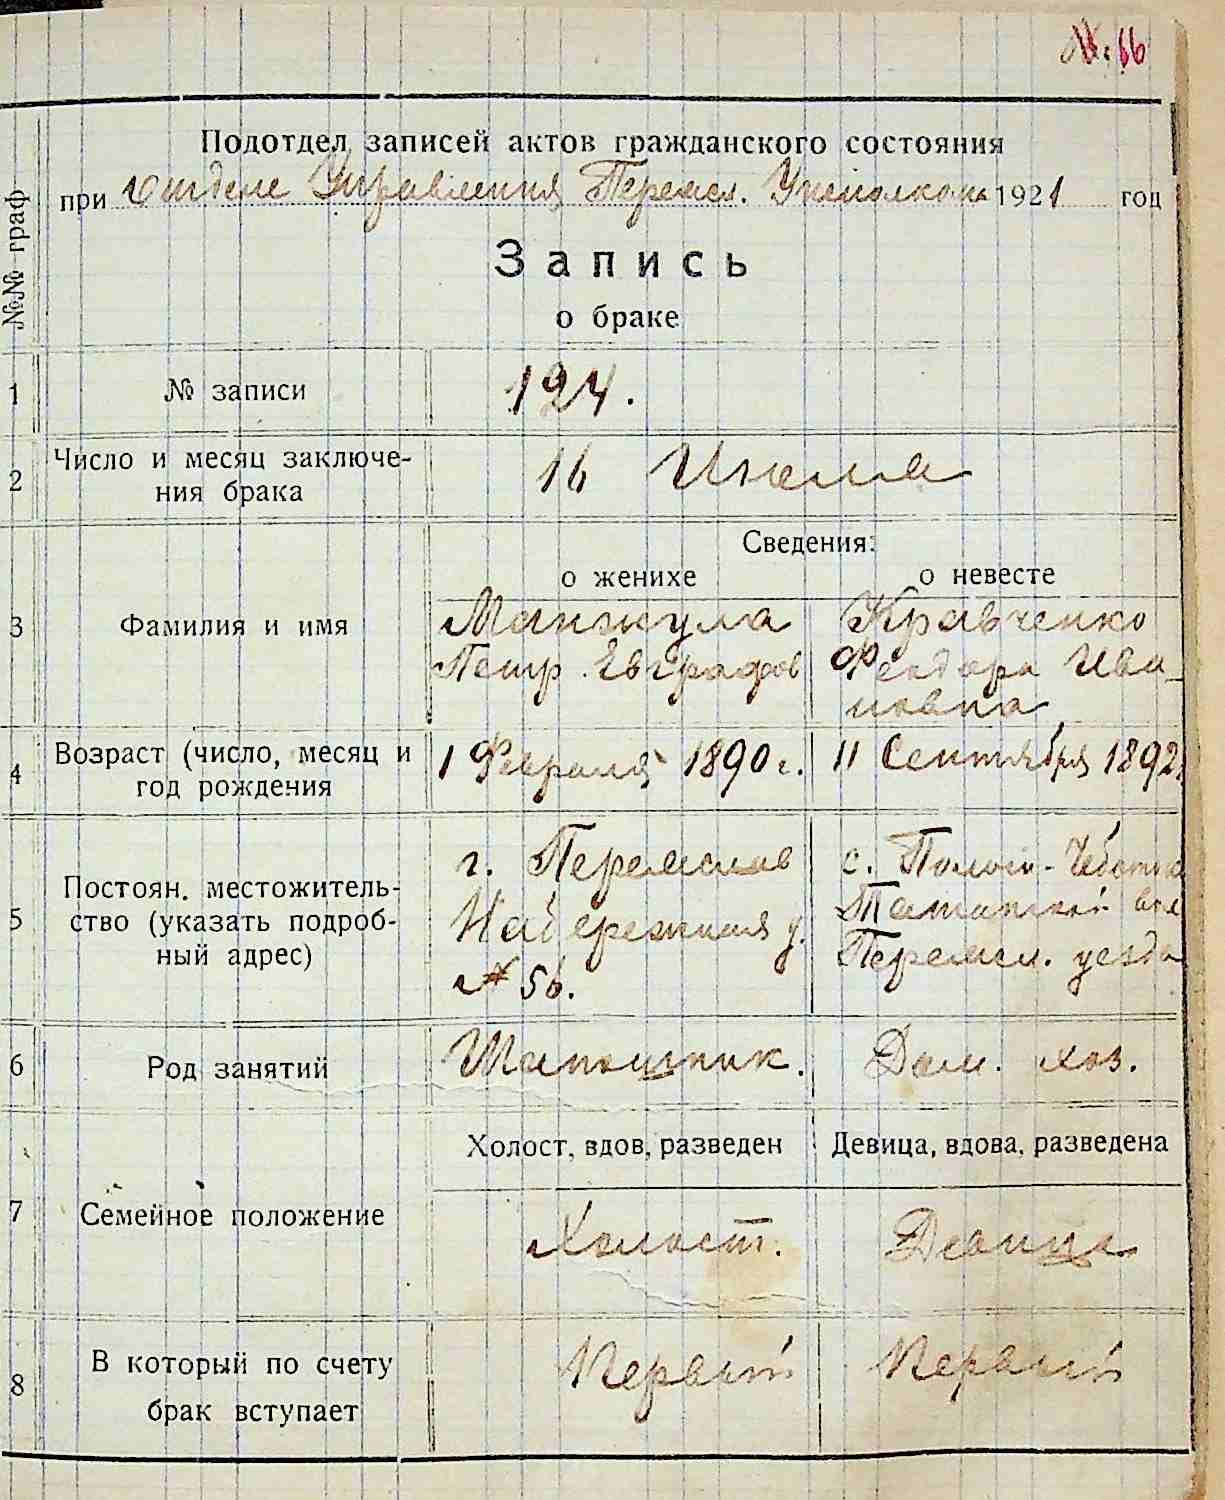 № 66
Подотдел записей актов гражданского состояния
при Отделе Управления Переясл. Уисполкома 1921 год
Запись
о браке
№№ граф
1 № записи 124.
2 Число и месяц заключе-
ния брака 16 Июля
Сведения:
о женихе о невесте
3 Фамилия и имя Манжула Кравченко
Петр Евграфов Феодора Ива-
новна
4 Возраст (число, месяц и
год рождения 1 Февраля 1890 г. 11 Сентября 1892
5 Постоян. местожитель-
ство (указать подроб-
ный адрес) г. Переяслав с.
Набережная у. вол
№ 56. Переясл. уезда
6 Род занятий Шапошник. Дом. хоз.
Холост, вдов, разведен Девица, вдова, разведена
7 Семейное положение Холост. Девица
8 В который по счету
брак вступает Первый Первый